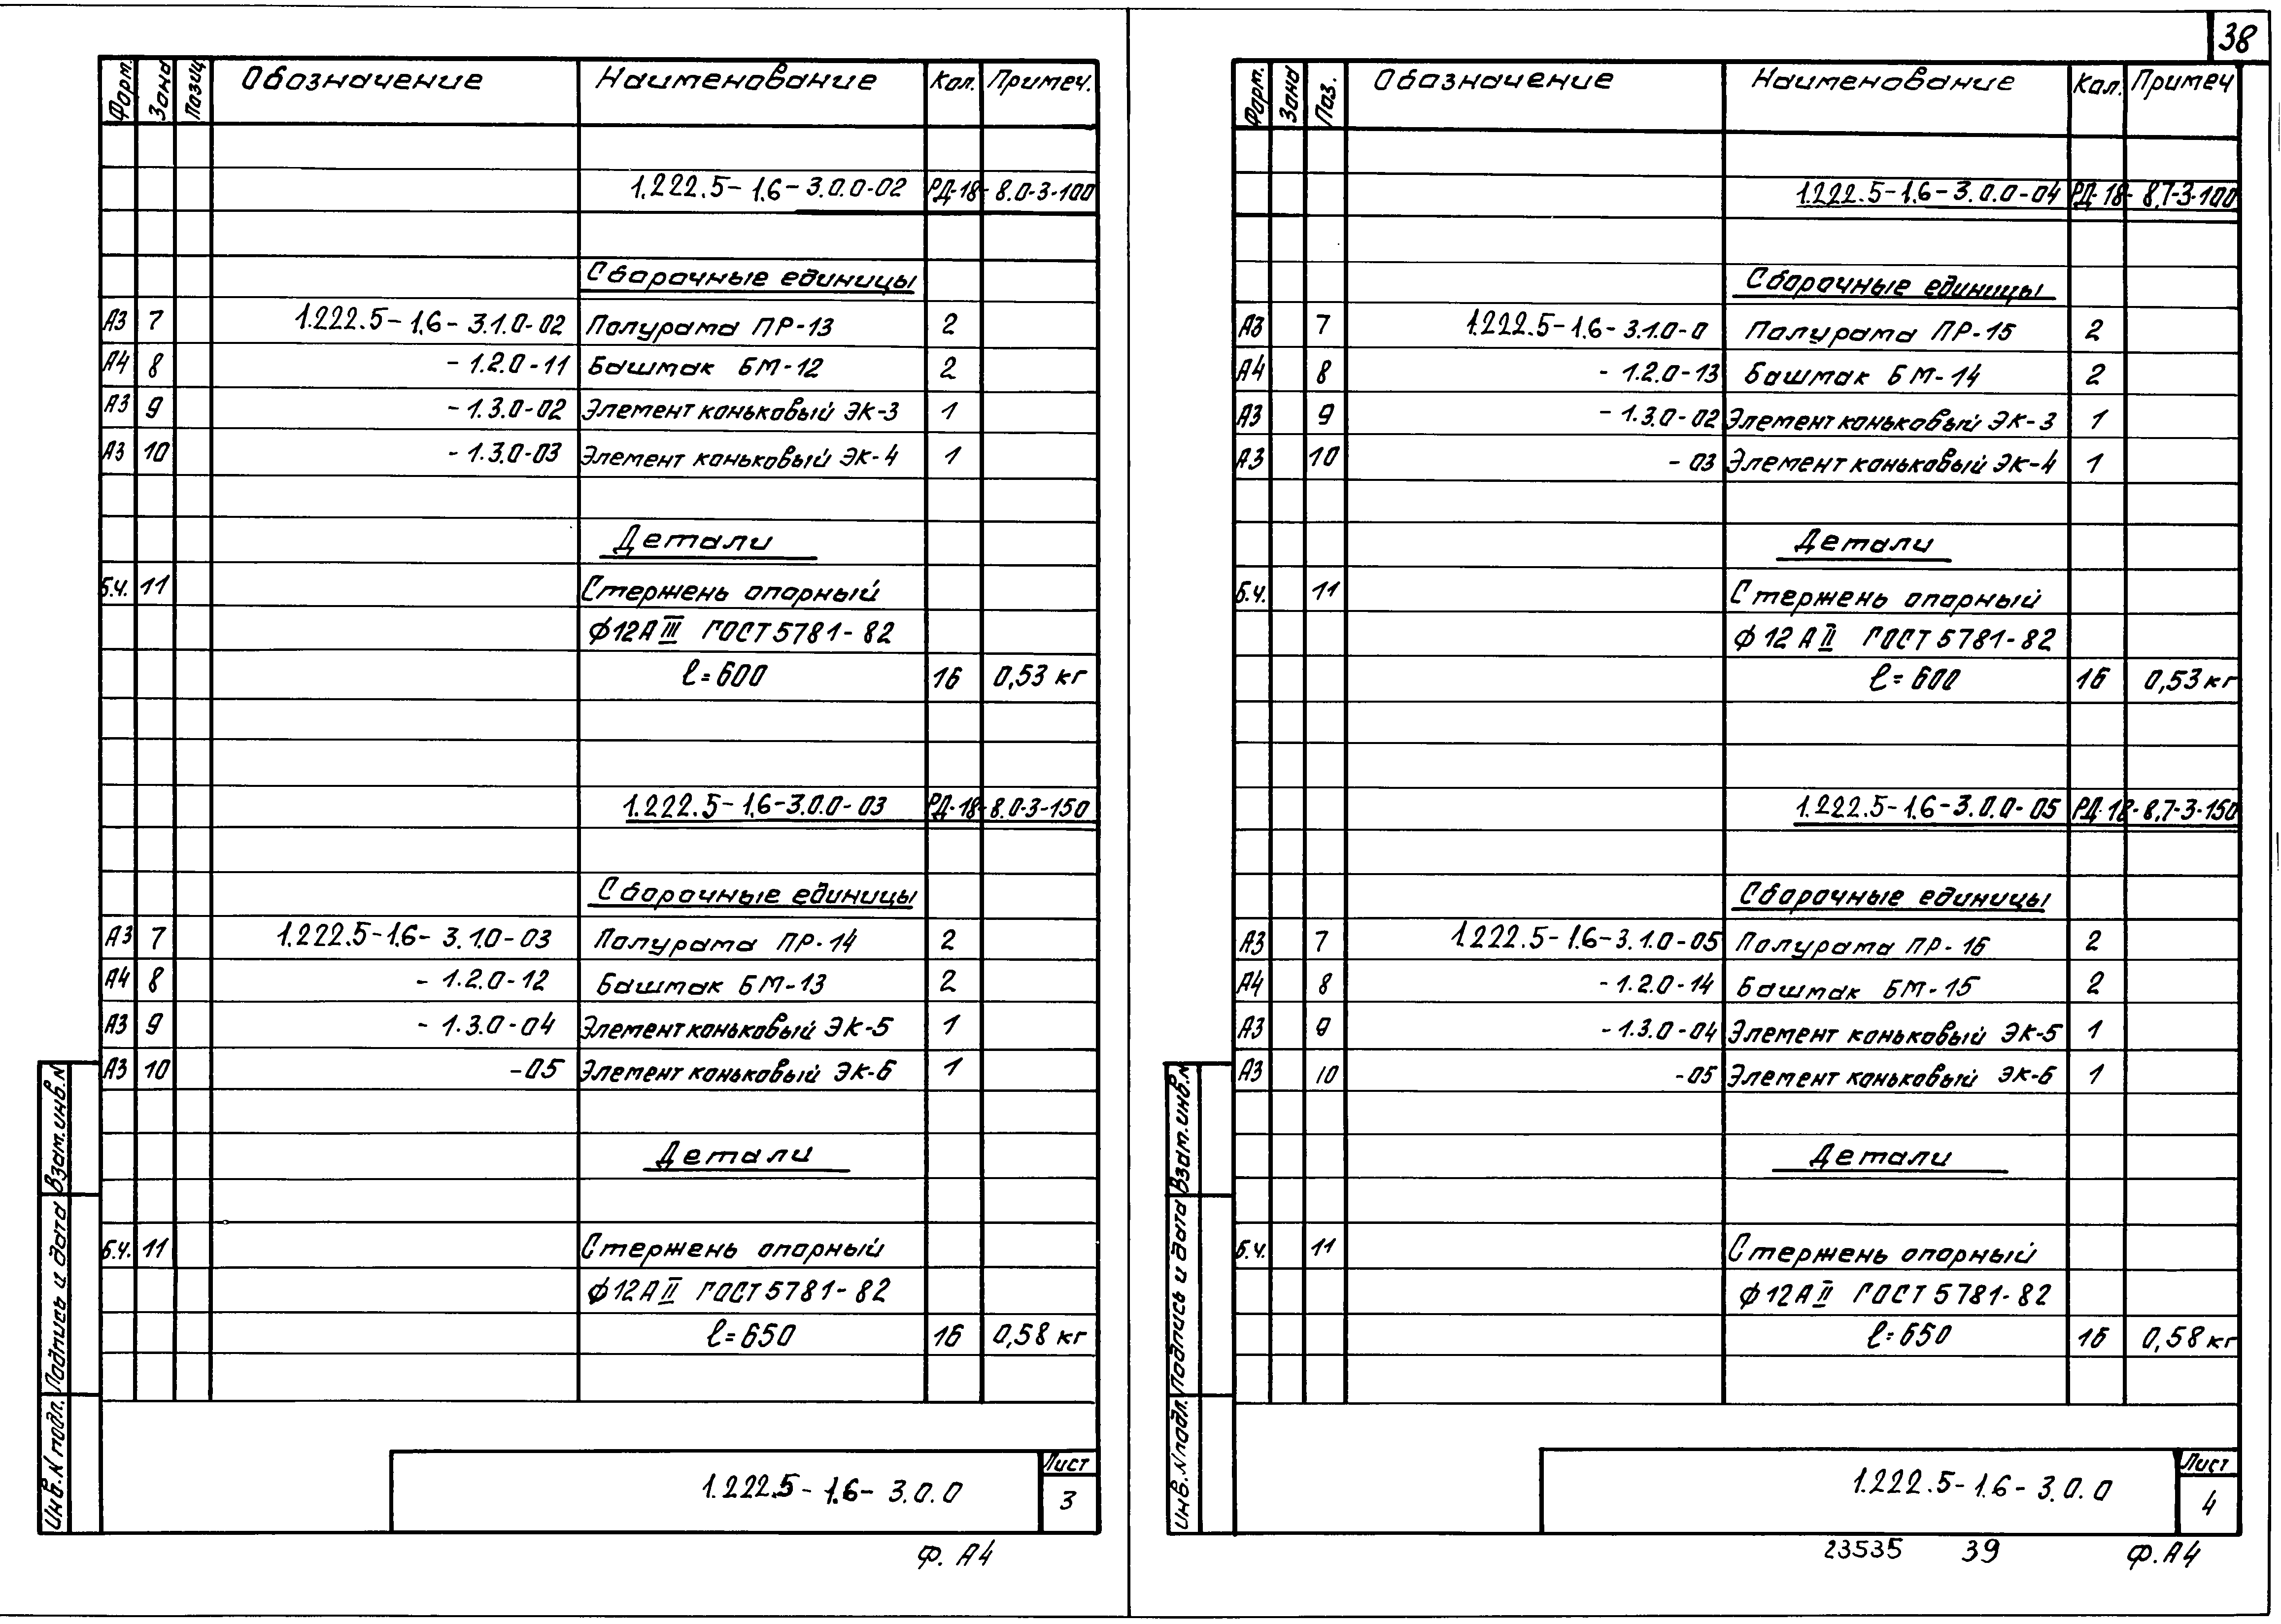 38
Форм. Зона Позиц Обозначение Наименование Кол. Примеч.
1.222.5-1.6-3.0.0-02 РД-18-8.0-3-100
Сборочные единицы
А3 7 1.222.5-1.6-3.1.0-02 Полурама ПР-13 2
А4 8 -1.2.0-11 Башмак БМ-12 2
А3 9 -1.3.0-02 Элемент коньковый ЭК-3 1
А3 10 -1.3.0-03 Элемент коньковый ЭК-4 1
Детали
Б.ч. 11 Стержень опорный
ϕ12АIII ГОСТ 5781-82
ℓ=600 16 0,53 кг
1.222.5-1.6-3.0.0-03 РД-18-8.0-3-150
Сборочные единицы
А3 7 1.222.5-1.6-3.1.0-03 Полурама ПР-14 2
А4 8 -1.2.0-12 Башмак БМ-13 2
А3 9 -1.3.0-04 Элемент коньковый ЭК-5 1
А3 10 -05 Элемент коньковый ЭК-6 1
Детали
Б.ч. 11 Стержень опорный
ϕ12АII ГОСТ 5781-82
ℓ=650 16 0,58 кг
Инв.N подл. Подпись и дата Взам.инв.N
1.222.5-1.6-3.0.0
Лист
3
Ф. А4
Форм. Зона Поз. Обозначение Наименование Кол. Примеч
1.222.5-1.6-3.0.0-04 РД-18-8,7-3-100
Сборочные единицы
А3 7 1.222.5-1.6-3.1.0-0 Полурама ПР-15 2
А4 8 -1.2.0-13 Башмак БМ-14 2
А3 9 -1.3.0-02 Элемент коньковый ЭК-3 1
А3 10 -03 Элемент коньковый ЭК-4 1
Детали
Б.ч. 11 Стержень опорный
ϕ12АII ГОСТ 5781-82
ℓ=600 16 0,53 кг
1.222.5-1.6-3.0.0-05 РД-18-8,7-3-150
Сборочные единицы
А3 7 1.222.5-1.6-3.1.0-05 Полурама ПР-16 2
А4 8 -1.2.0-14 Башмак БМ-15 2
А3 9 -1.3.0-04 Элемент коньковый ЭК-5 1
А3 10 -05 Элемент коньковый ЭК-6 1
Детали
Б.ч. 11 Стержень опорный
ϕ12АII ГОСТ 5781-82
ℓ=650 16 0,58 кг
Инв.N подл. Подпись и дата Взам.инв.N
1.222.5-1.6-3.0.0
Лист
4
23535 39 Ф.А4